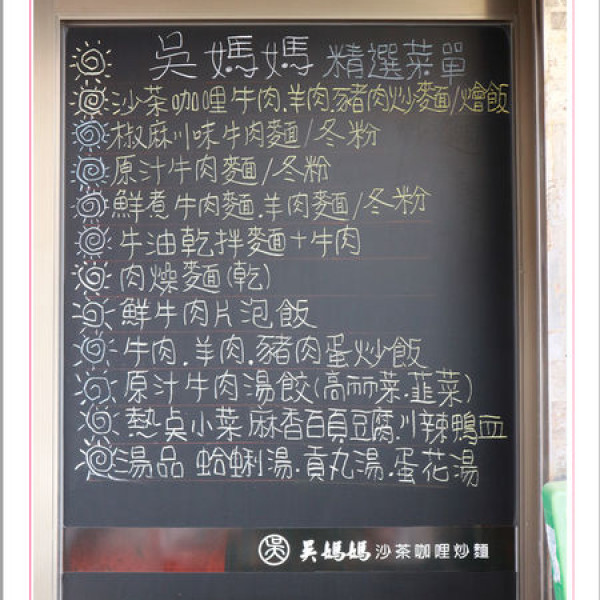 吳媽媽 精選菜單
沙茶咖哩牛肉.羊肉.豬肉炒麵/燴飯
椒麻川味牛肉麵/冬粉
原汁牛肉麵/冬粉
鮮煮牛肉麵.羊肉麵/冬粉
牛油乾拌麵+牛肉
肉燥麵(乾)
鮮牛肉片泡飯
牛肉.羊肉.豬肉蛋炒飯
原汁牛肉湯餃(高麗菜.韭菜)
熱桌小菜 麻香百頁豆腐.川辣鴨血
湯品 蛤蜊湯.貢丸湯.蛋花湯
吳 吳媽媽 沙茶咖哩炒麵